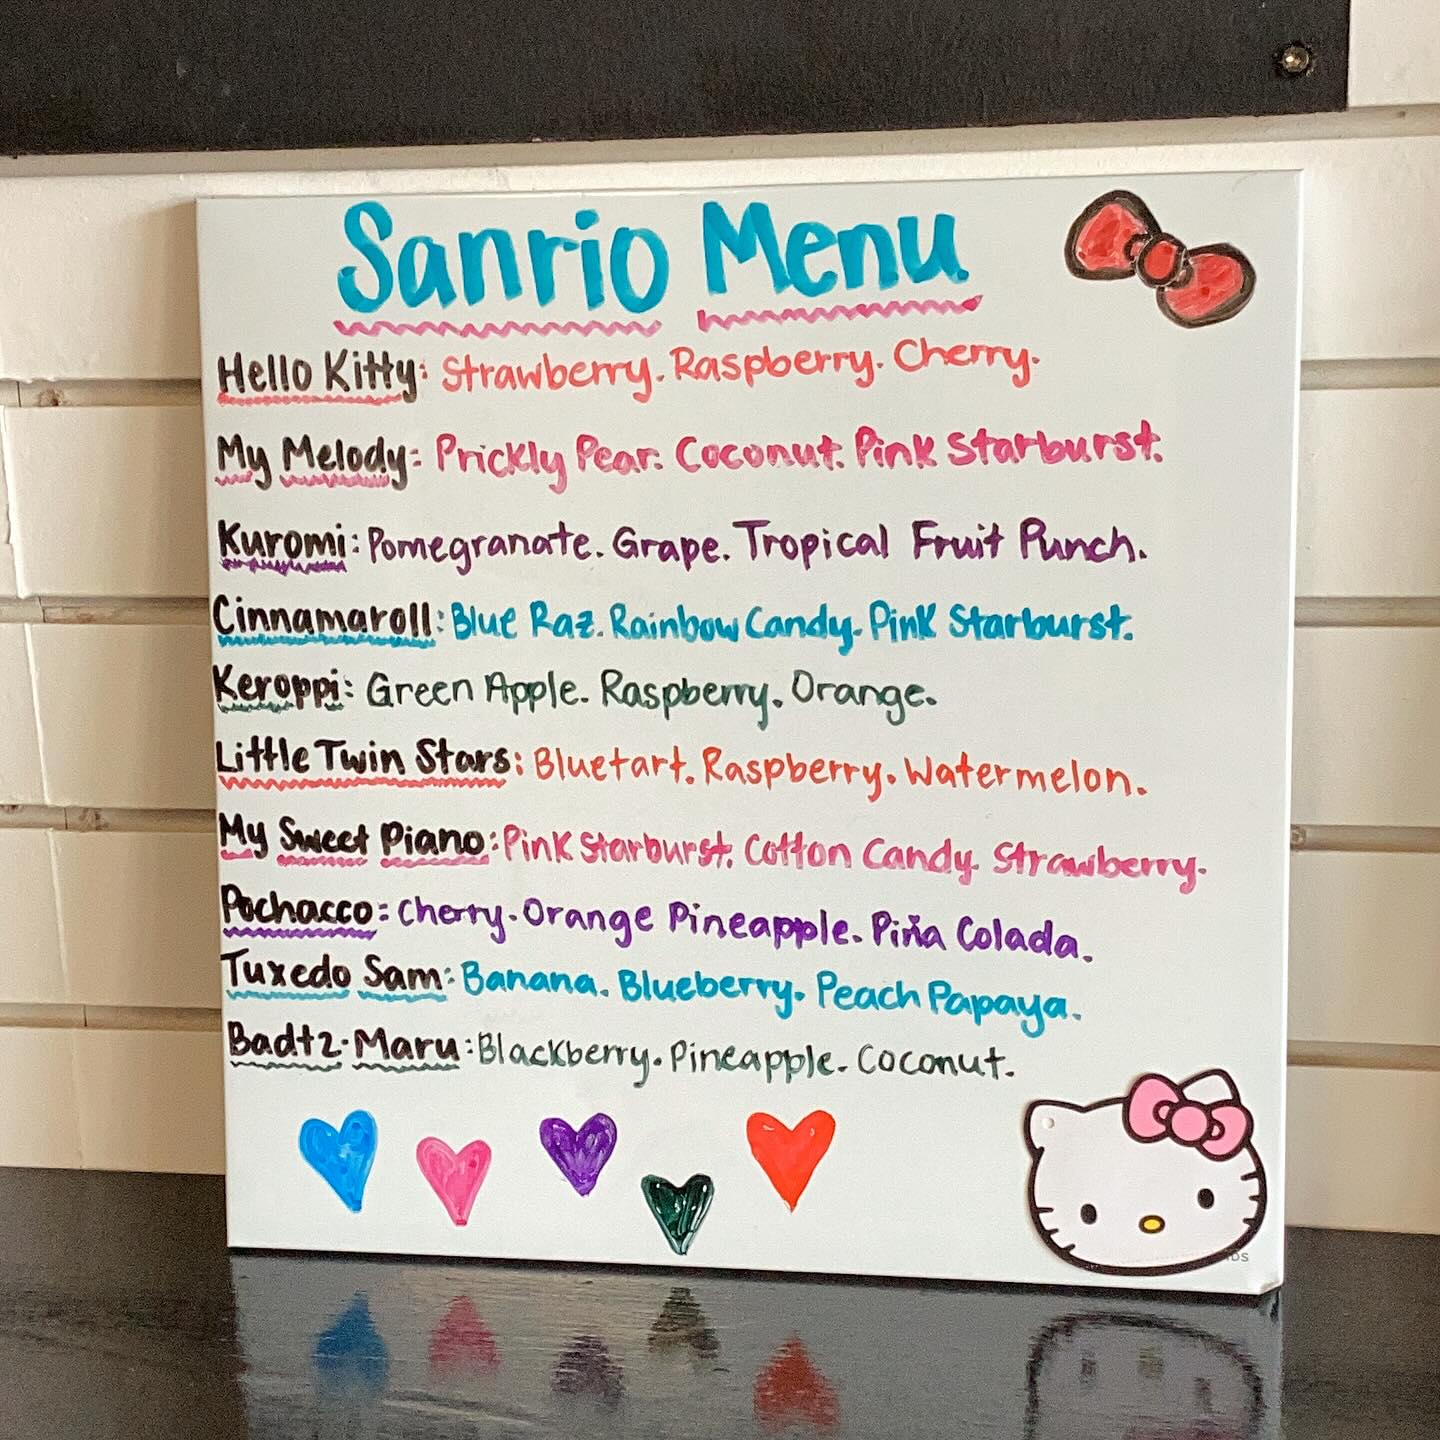 Sanrio Menu
Hello Kitty: Strawberry. Raspberry. Cherry.
My Melody: Prickly Pear. Coconut. Pink Starburst.
Kuromi: Pomegranate. Grape. Tropical Fruit Punch.
Cinnamaroll: Blue Raz. Rainbow Candy. Pink Starburst.
Keroppi: Green Apple. Raspberry. Orange.
Little Twin Stars: Bluetart. Raspberry. Watermelon.
My Sweet Piano: Pink Starburst. Cotton Candy. Strawberry.
Pochacco: Cherry. Orange Pineapple. Piña Colada.
Tuxedo Sam: Banana. Blueberry. Peach Papaya.
Badtz-Maru: Blackberry. Pineapple. Coconut.